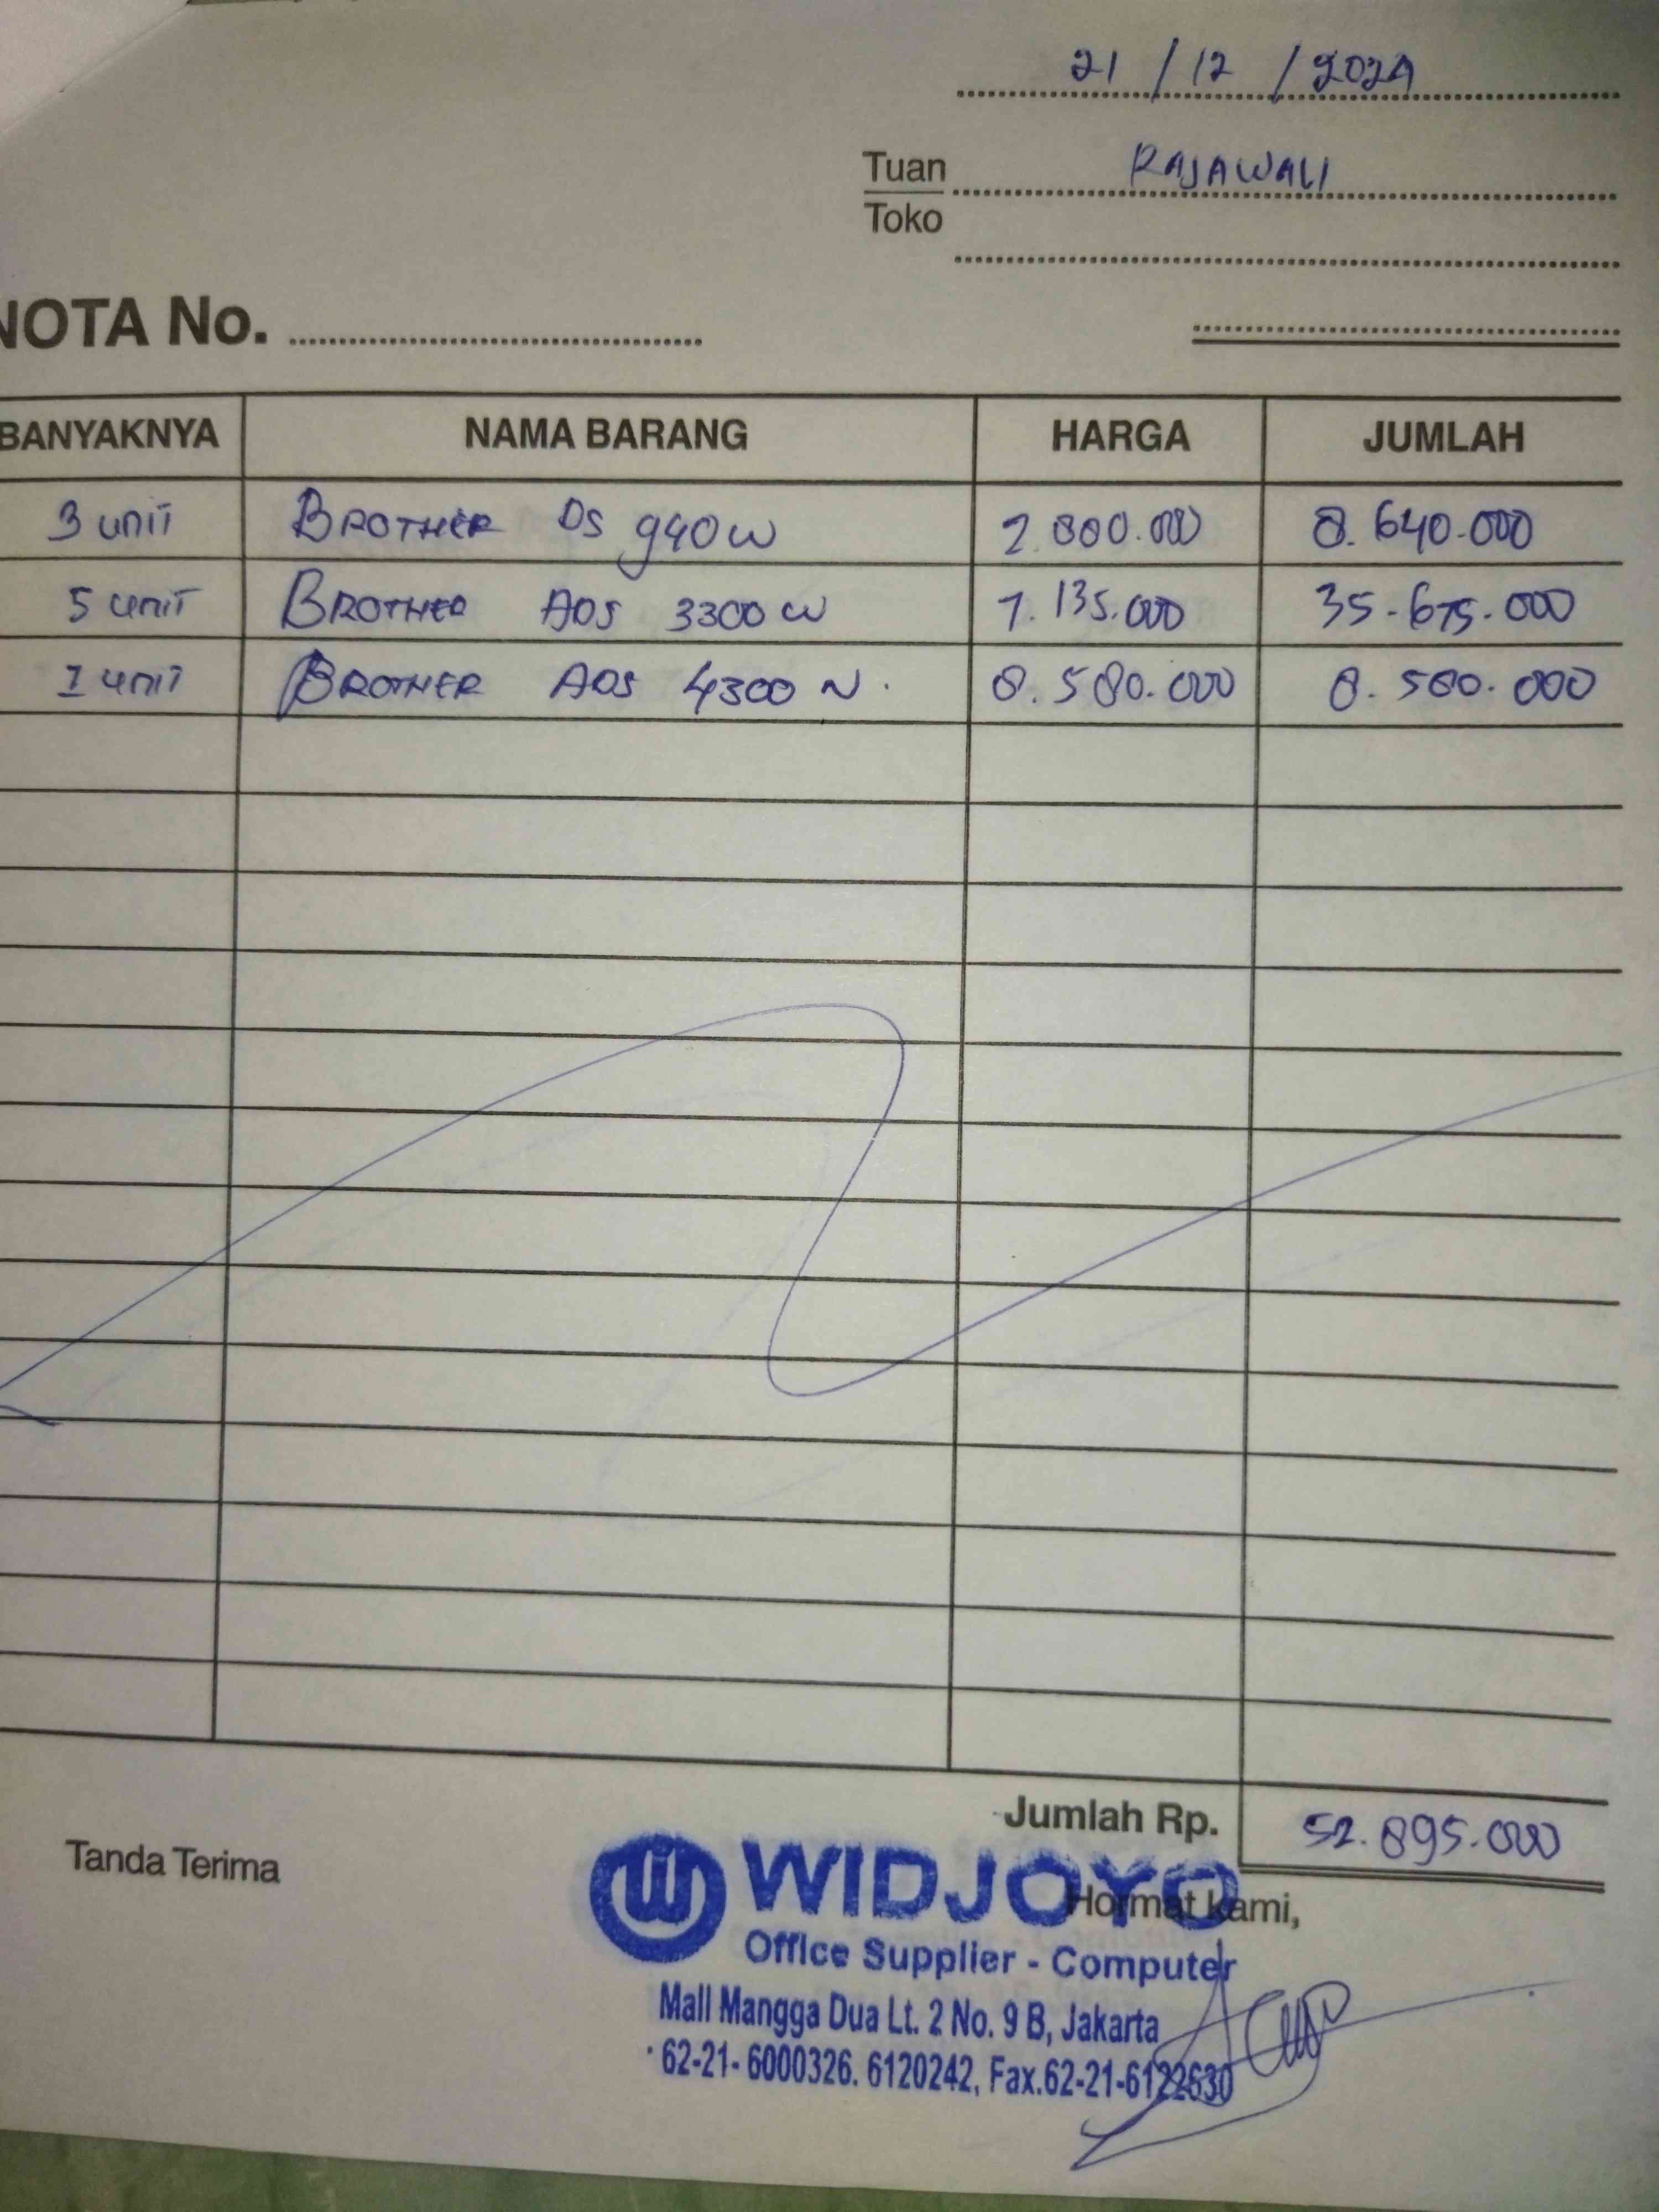 21 / 12 / 2024
Tuan RAJAWALI
Toko
NOTA No.
BANYAKNYA NAMA BARANG HARGA JUMLAH
3 unit BROTHER DS 940 W 2.880.000 8.640.000
5 unit BROTHER ADS 3300 W 7.135.000 35.675.000
1 unit BROTHER ADS 4300 N. 8.580.000 8.580.000
Jumlah Rp. 52.895.000
Tanda Terima
Hormat kami,
WIDJOYO
Office Supplier - Computer
Mall Mangga Dua Lt. 2 No. 9 B, Jakarta
62-21- 6000326. 6120242, Fax.62-21-6122630